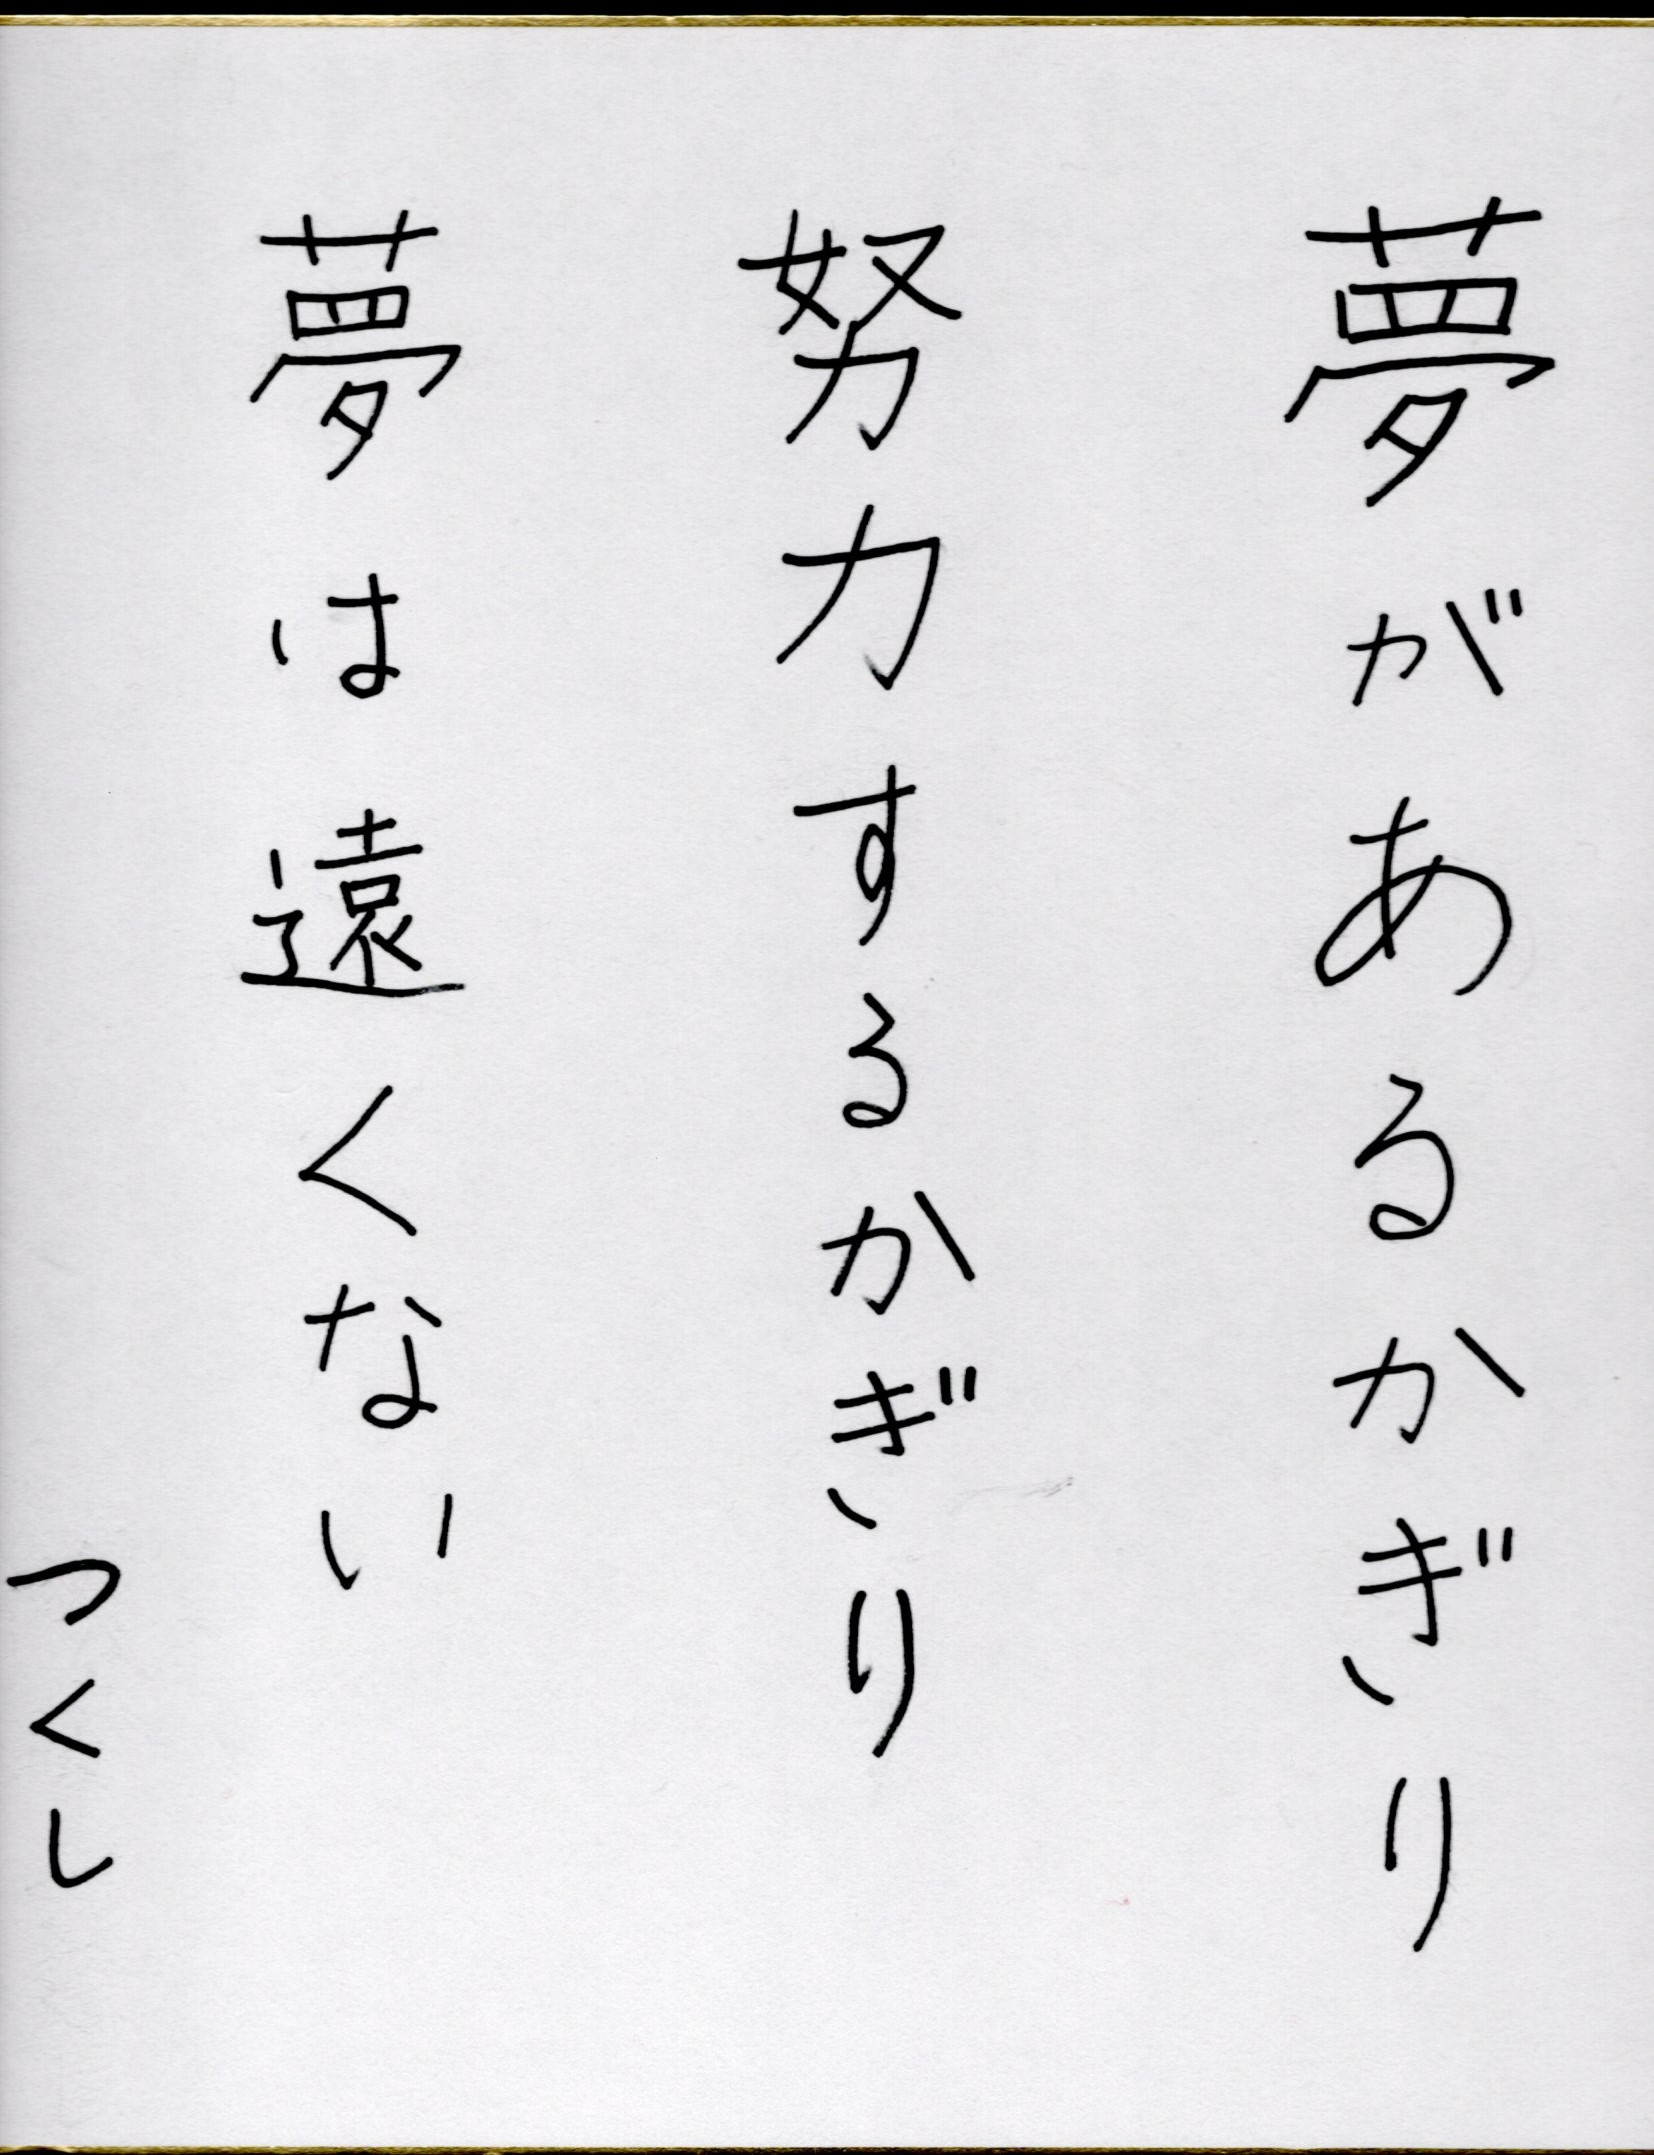 夢があるかぎり
努力するかぎり
夢は遠くない
つくし